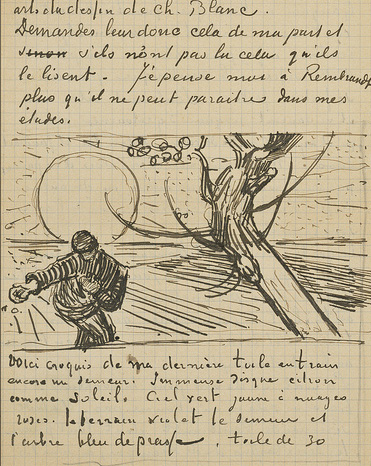 arts du dessin de Ch. Blanc.
Demandes leur donc cela de ma part et
sinon s'ils n'ont pas lu cela qu'ils
le lisent. J'y pense moi à Rembrandt
plus qu'il ne peut paraitre dans mes
études.
Voici croquis de ma dernière toile en train
encore un semeur. Immense disque citron
comme soleil. Ciel vert jaune à nuages
roses. le terrain violet le semeur et
l'arbre bleu de prusse. toile de 30